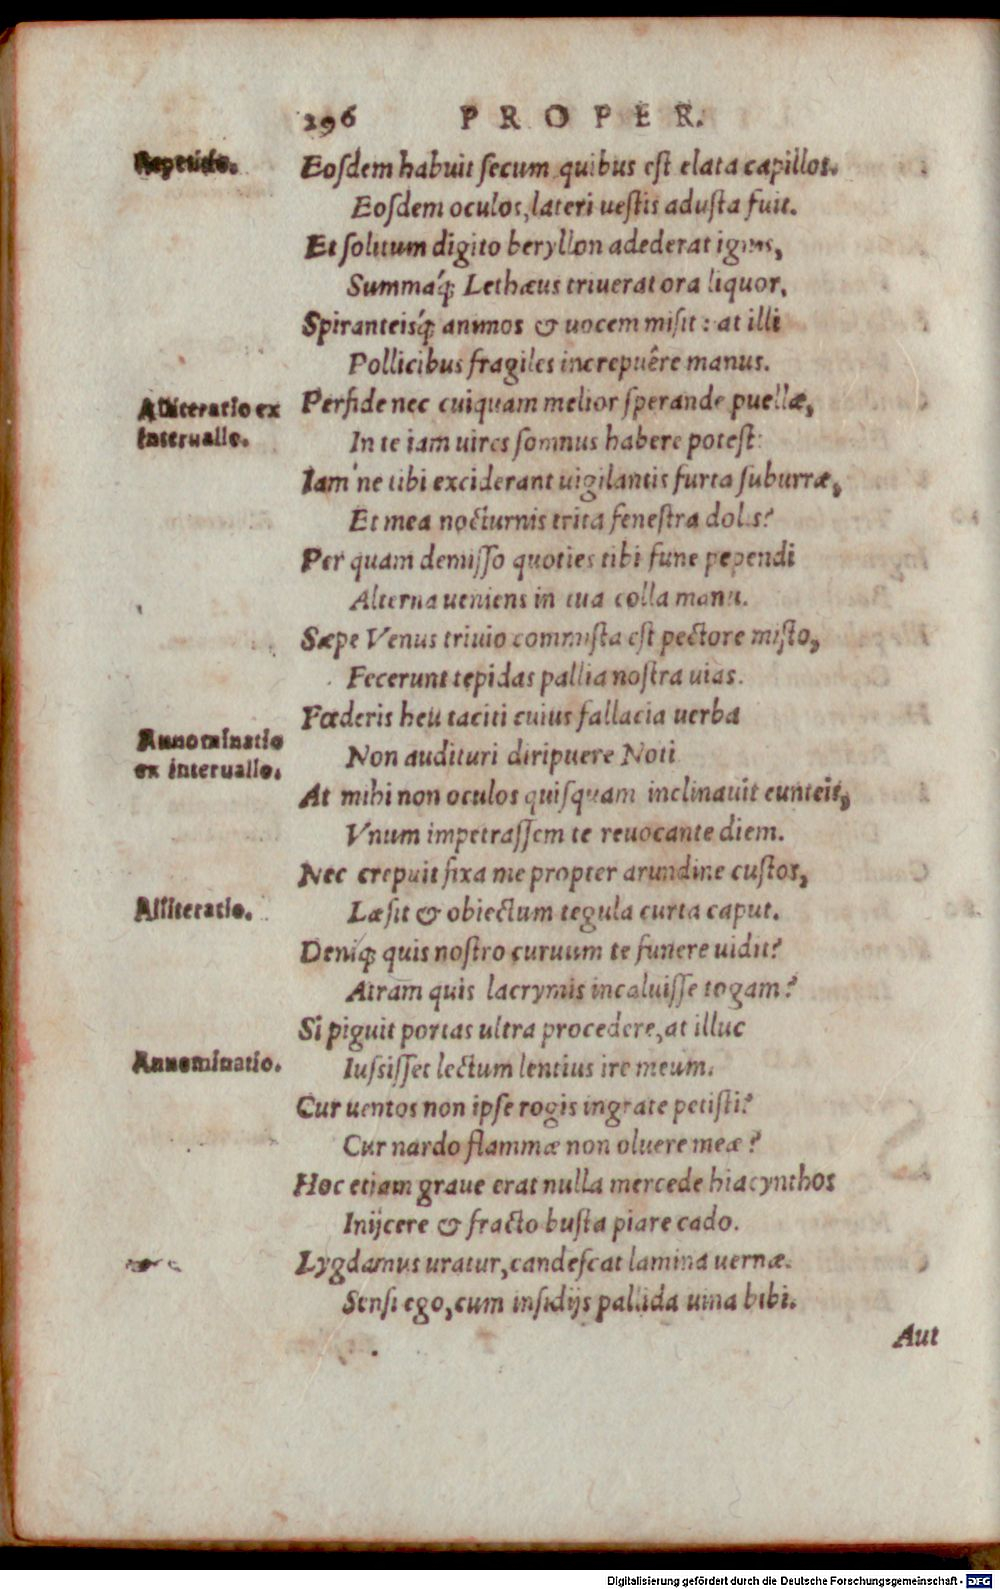 296 PROPER.
Repetitio.
Eosdem habuit secum quibus est elata capillos.
Eosdem oculos, lateri uestis adusta fuit.
Et solitum digito beryllon adederat ignis,
Summaq́; Lethæus triuerat ora liquor.
Spiranteisq́; animos & uocem misit: at illi
Pollicibus fragiles increpuêre manus.
Alliteratio ex
interuallo.
Perfide nec cuiquam melior sperande puellæ,
In te iam uires somnus habere potest:
Iam'ne tibi exciderant uigilantis furta suburræ,
Et mea nocturnis trita fenestra dolis?
Per quam demisso quoties tibi fune pependi
Alterna ueniens in tua colla manu.
Sæpe Venus triuio commista est pectore misto,
Fecerunt tepidas pallia nostra uias.
Fœderis heu taciti cuius fallacia uerba
Annominatio
ex interuallo.
Non audituri diripuere Noti
At mihi non oculos quisquam inclinauit eunteis,
Vnum impetrassem te reuocante diem.
Nec crepuit fixa me propter arundine custos,
Alliteratio.
Læsit & obiectum tegula curta caput.
Deniq; quis nostro curuum te funere uidit?
Atram quis lacrymis incaluisse togam?
Si piguit portas ultra procedere, at illuc
Annominatio.
Iussisset lectum lentius ire meum.
Cur uentos non ipse rogis ingrate petisti?
Cur nardo flammæ non oluere meæ?
Hoc etiam graue erat nulla mercede hiacynthos
Inijcere & fracto busta piare cado.
Lygdamus uratur, candescat lamina uernæ.
Sensi ego, cum insidijs pallida uina bibi.
Aut
Digitalisierung gefördert durch die Deutsche Forschungsgemeinschaft - DFG